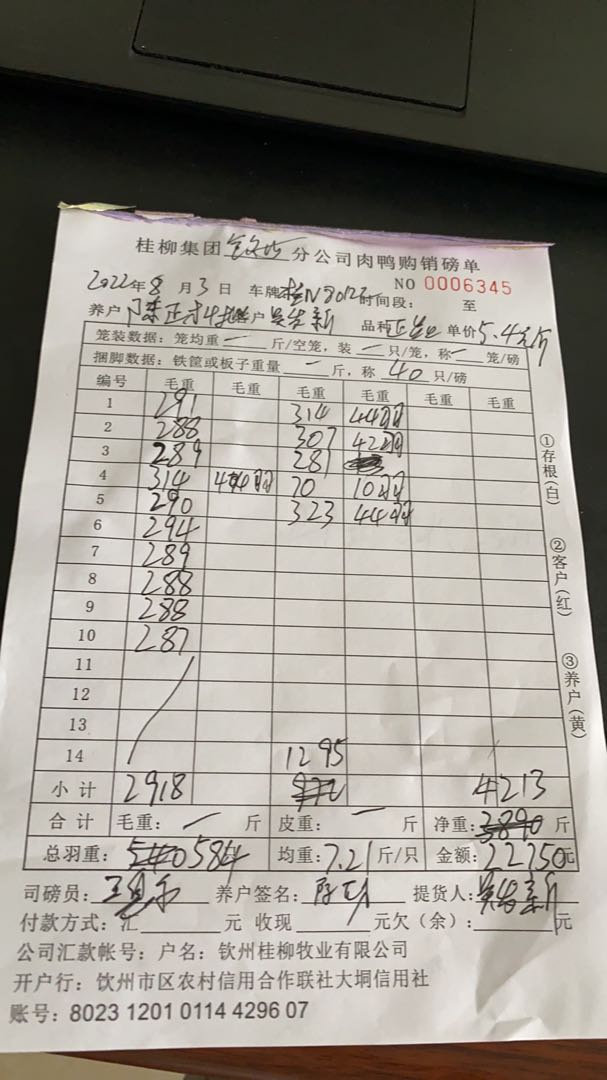 桂柳集团 分公司肉鸭购销磅单
2022年8月3日 车牌 时间段： 至 NO 0006345
养户 陈正才 客户 吴世新 品种 单价5.4元/斤
笼装数据：笼均重 一 斤/空笼，装 一 只/笼，称 一 笼/磅
捆脚数据：铁筐或板子重量 一 斤，称 40 只/磅
编号 毛重 毛重 毛重 毛重 毛重 毛重
1 291 314 44羽
2 288 307 42羽
3 289 281
4 314 44羽 70 10羽
5 290 323 44羽
6 294
7 289
8 288
9 288
10 287
11
12
13
14 1295
小计 2918 4213
合计 毛重： 一 斤 皮重： 一 斤 净重：3890 斤
总羽重：540 584 均重：7.21斤/只 金额：22750元
司磅员： 养户签名： 提货人：吴世新
付款方式：汇 元 收现 元欠（余）： 元
公司汇款帐号：户名：钦州桂柳牧业有限公司
开户行：钦州市区农村信用合作联社大垌信用社
账号：8023 1201 0114 4296 07
①存根（白）
②客户（红）
③养户（黄）